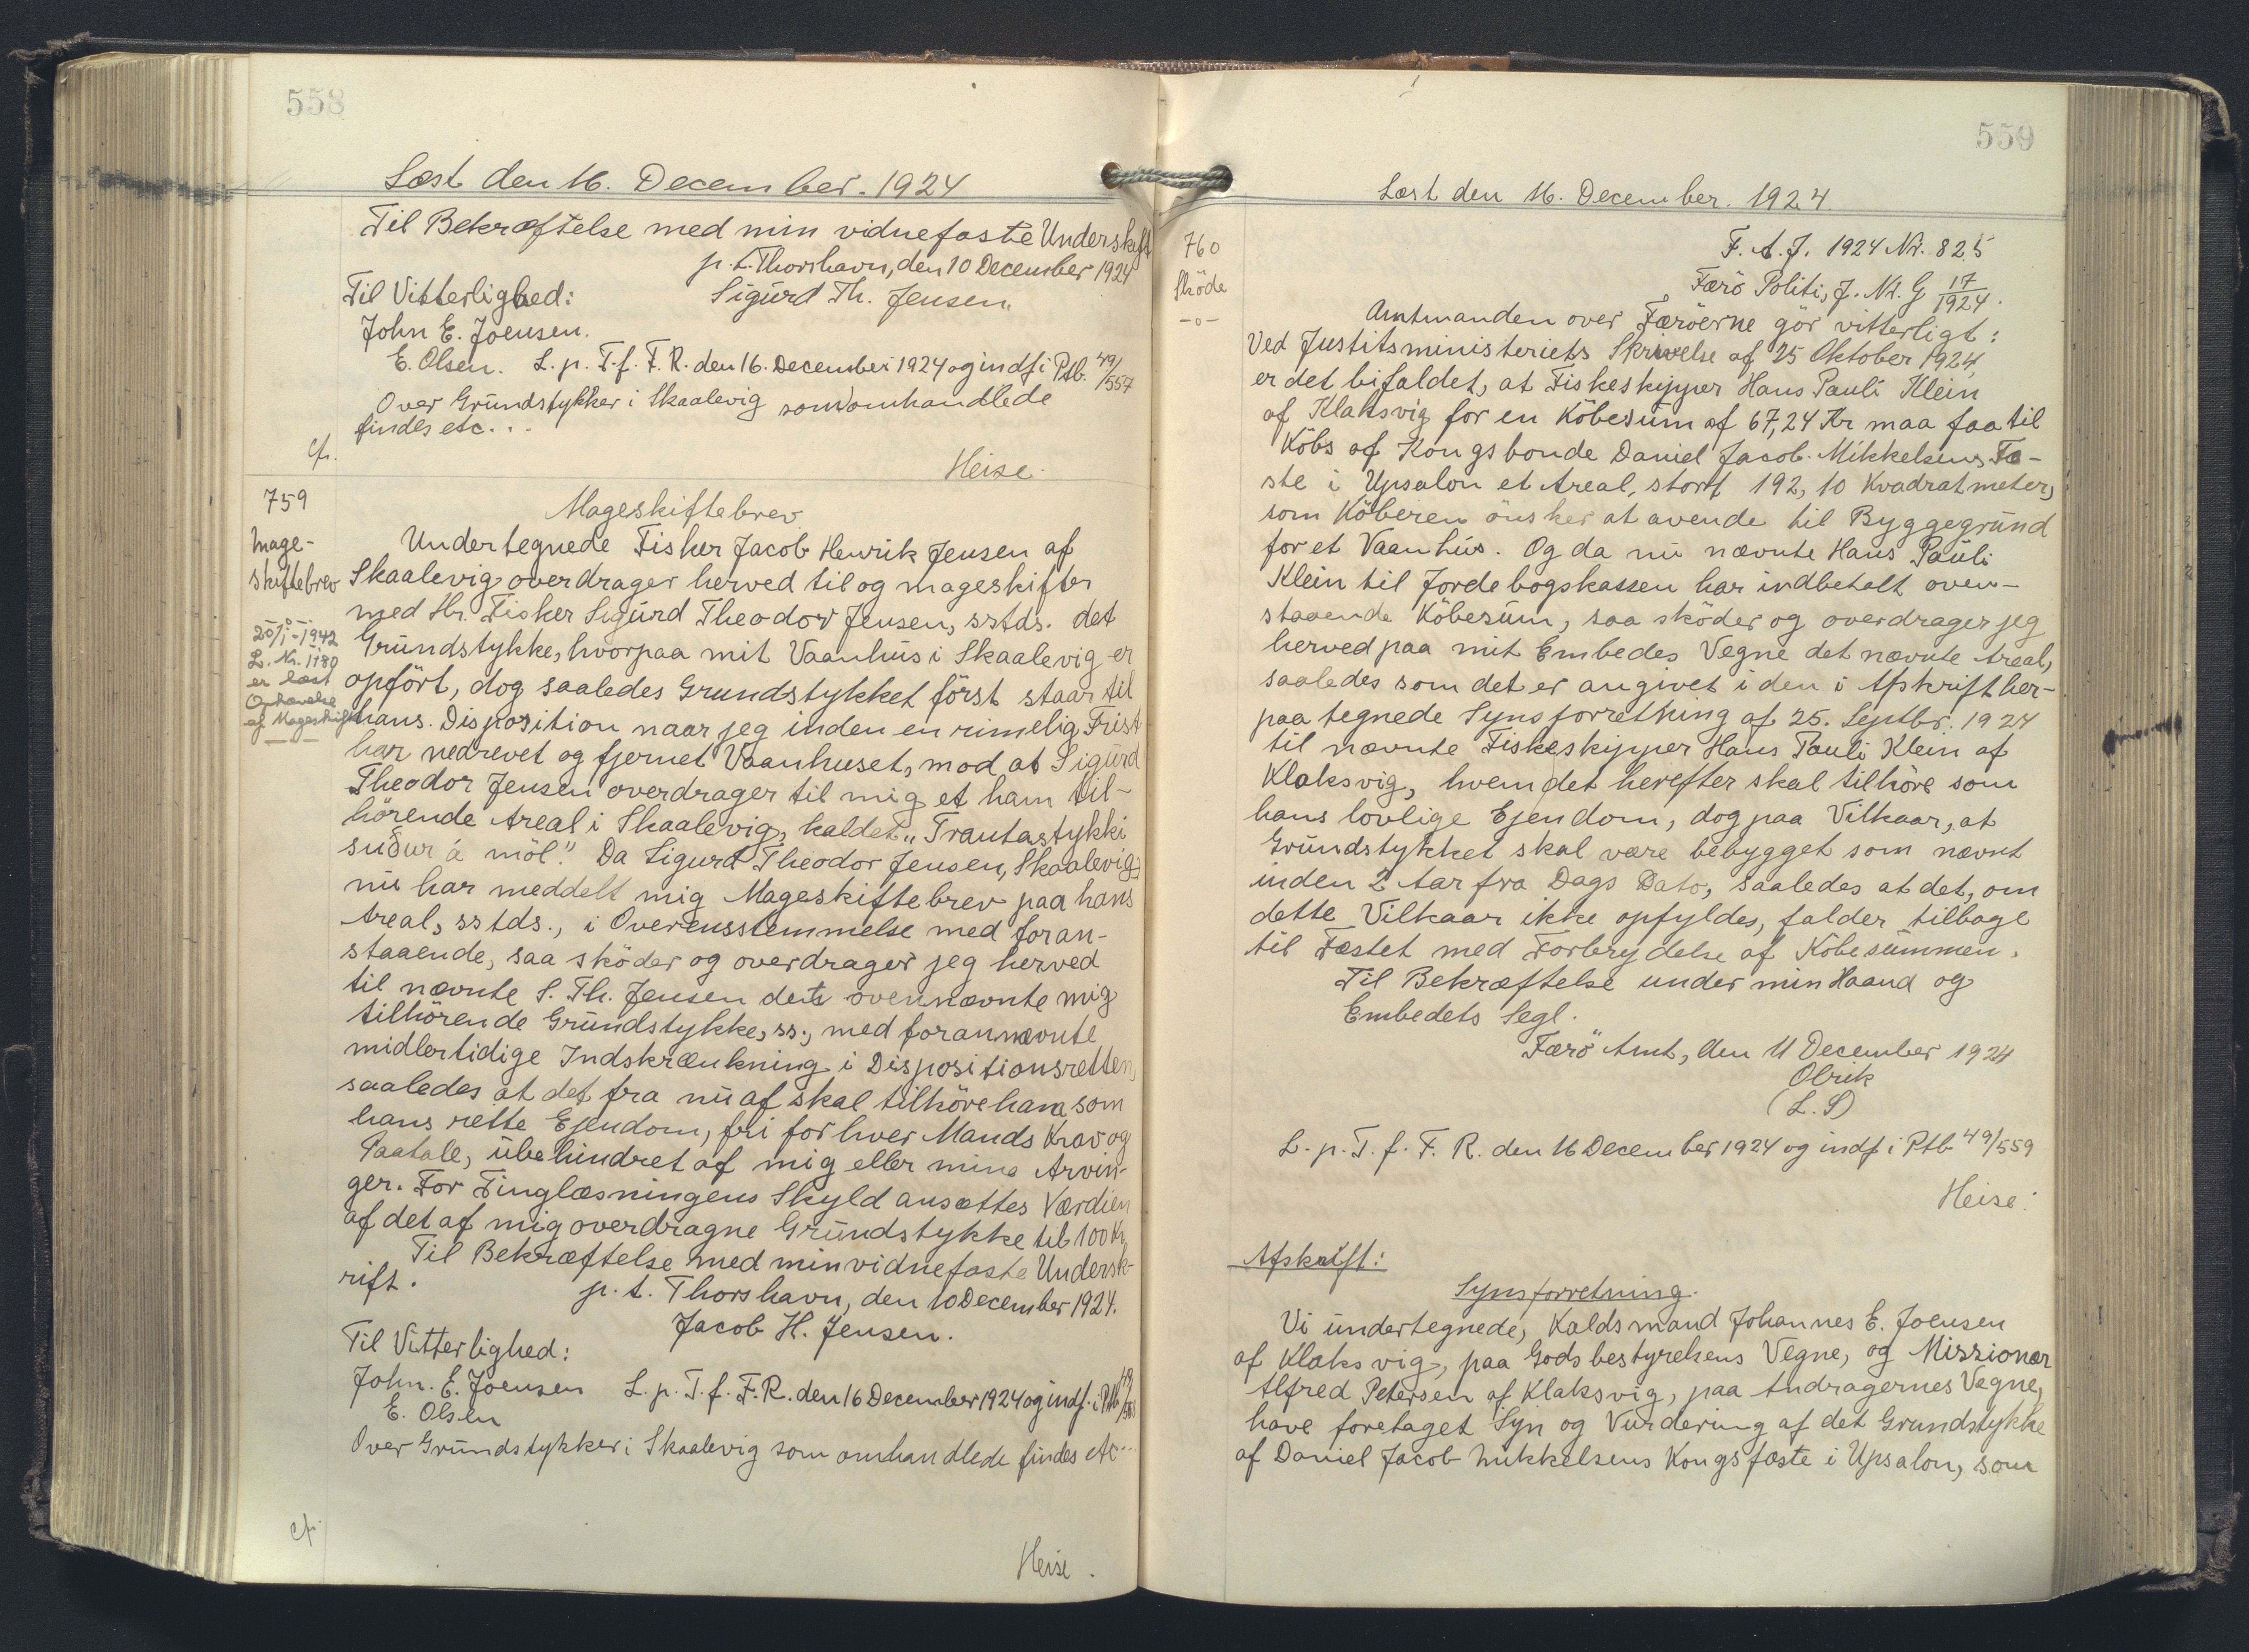 558
Læst den 16. December. 1924
Til Bekræftelse med min vidnefaste Underskrift
p. t. Thorshavn, den 10 December 1924
Til Vitterlighed: Sigurd Th. Jensen.
John E. Joensen.
E. Olsen. L. p. T. f. F. R. den 16. December 1924 og indf i Ptb. 49/557
Over Grundstykker i Skaalevig som omhandlede
findes etc...
cfr.
Heise.
759
Mage-
skiftebrev
-o-
20/1-1942
L. Nr. 1180
er læst
Ophævelse
af Mageskift
Mageskiftebrev
Undertegnede Fisker Jacob Henrik Jensen af
Skaalevig overdrager herved til og mageskifter
med Hr. Fisker Sigurd Theodor Jensen, sstds. det
Grundstykke, hvorpaa mit Vaanhus i Skaalevig er
opfört, dog saaledes Grundstykket först staar til
hans Disposition naar jeg inden en rimelig Frist
har nedrevet og fjernet Vaanhuset, mod at Sigurd
Theodor Jensen overdrager til mig et ham til-
hörende Areal i Skaalevig, kaldet „Trantastykki
suður á möl". Da Sigurd Theodor Jensen, Skaalevig,
nu har meddelt mig Mageskiftebrev paa hans
Areal, sstds., i Overensstemmelse med foran-
staaende, saa sköder og overdrager jeg herved
til nævnte S. Th. Jensen det ovennævnte mig
tilhörende Grundstykke, ss., med forannævnte
midlertidige Indskrænkning i Dispositionsretten,
saaledes at det fra nu af skal tilhöre ham som
hans rette Ejendom, fri for hver Mands Krav og
Paatale, ubehindret af mig eller mine Arvin-
ger. For Tinglæsningens Skyld ansættes Værdien
af det af mig overdragne Grundstykke til 100 Kr
Til Bekræftelse med min vidnefaste Undersk-
rift. p. t. Thorshavn, den 10 December 1924.
Jacob H. Jensen.
Til Vitterlighed:
John. E. Joensen L. p. T. f. F. R. den 16 December 1924 og indf. i Ptb
E. Olsen
Over Grundstykker i Skaalevig som omhandlede findes etc...
cfr.
Heise.
559
Læst den 16. December. 1924.
760
Sköde
-o-
F. A. J. 1924 Nr. 825
Færö Politi, J. Nr. G 17/1924.
Amtmanden over Færöerne gör vitterligt:
Ved Justitsministeriets Skrivelse af 25 Oktober 1924,
er det bifaldet, at Fiskeskipper Hans Pauli Klein
af Klaksvig for en Köbesum af 67,24 Kr maa faa til
Köbs af Kongsbonde Daniel Jacob Mikkelsens Fæ-
ste i Upsalon et Areal, stort 192,10 Kvadratmeter,
som Köberen önsker at avende til Byggegrund
for et Vaanhus. Og da nu nævnte Hans Pauli
Klein til Jordebogskassen har indbetalt oven-
staaende Köbesum, saa sköder og overdrager jeg
herved paa mit Embedes Vegne det nævnte Areal,
saaledes som det er angivet i den i Afskrift her-
paa tegnede Synsforretning af 25. Septbr. 1924
til nævnte Fiskeskipper Hans Pauli Klein af
Klaksvig, hvem det herefter skal tilhöre som
hans lovlige Ejendom, dog paa Vilkaar, at
Grundstykket skal være bebygget som nævnt
inden 2 Aar fra Dags Dato, saaledes at det, om
dette Vilkaar ikke opfyldes, falder tilbage
til Fæstet med Forbrydelse af Köbesummen.
Til Bekræftelse under min Haand og
Embedets Segl.
Færö Amt, den 11 December 1924
Olrik
(L. S)
L. p. T. f. F. R. den 16 December 1924 og indf i Ptb 49/559
Heise.
Afskrift:
Synsforretning.
Vi undertegnede, Kaldsmand Johannes E. Joensen
af Klaksvig, paa Godsbestyrelsens Vegne, og Missionær
Alfred Petersen af Klaksvig, paa Andragernes Vegne,
have foretaget Syn og Vurdering af det Grundstykke
af Daniel Jacob Mikkelsens Kongsfæste i Upsalon, som